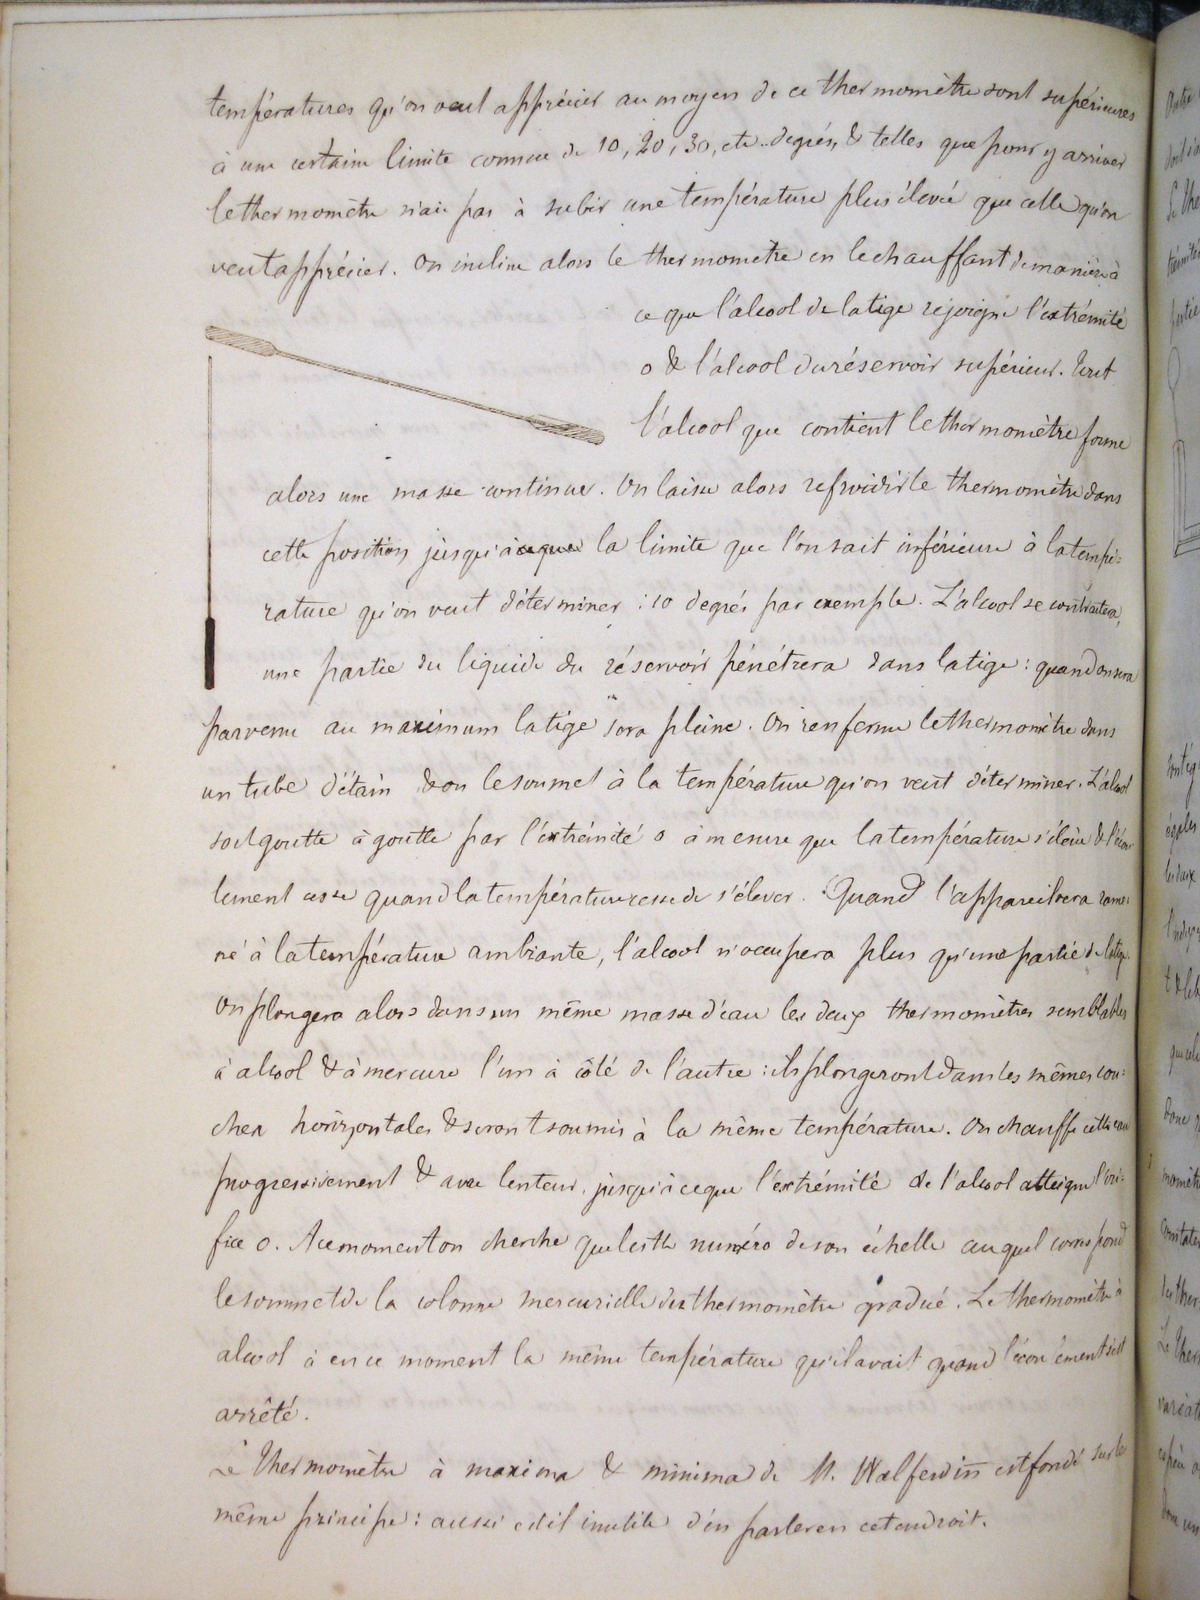 températures qu'on veut apprécier au moyen de ce thermomètre sont supérieures
à une certaine limite connue de 10, 20, 30, etc.. degrés, & telles que pour y arriver
le thermomètre n'aie pas à subir une température plus élevée que celle qu'on
veut apprécier. On incline alors le thermomètre en le chauffant de manière à
ce que l'alcool de la tige rejoigne l'extrémité
o & l'alcool du réservoir supérieur. Tout
l'alcool que contient le thermomètre forme
alors une masse continue. On laisse alors refroidir le thermomètre dans
cette position jusqu'à la limite que l'on sait inférieure à la tempé=
rature qu'on veut déterminer : 10 degrés par exemple. L'alcool se contractera,
une partie du liquide du réservoir pénétrera dans la tige : quand on sera
parvenu au maximum la tige sera pleine. On renferme le thermomètre dans
un tube d'étain & on le soumet à la température qu'on veut déterminer. L'alcool
sort goutte à goutte par l'extrémité o à mesure que la température s'élève & l'écou
lement cesse quand la température cesse de s'élever. Quand l'appareil sera rame=
né à la température ambiante, l'alcool n'occupera plus qu'une partie de la tige.
On plongera alors dans un même masse d'eau les deux thermomètres semblables
à alcool & à mercure l'un à côté de l'autre : ils plongeront dans les mêmes cou=
ches horizontales & seront soumis à la même température. On chauffe cette eau
progressivement & avec lenteur, jusqu'à ce que l'extrémité de l'alcool atteigne l'ori=
fice o. A ce moment on cherche quel est le numéro de son échelle auquel correspond
le sommet de la colonne mercurielle du thermomètre gradué. Le thermomètre à
alcool à en ce moment la même température qu'il avait quand l'écoulement s'est
arrêté.
Le Thermomètre à maxima & minima de M. Walferdin est fondé sur le
même principe : aussi est il inutile d'en parler en cet endroit.